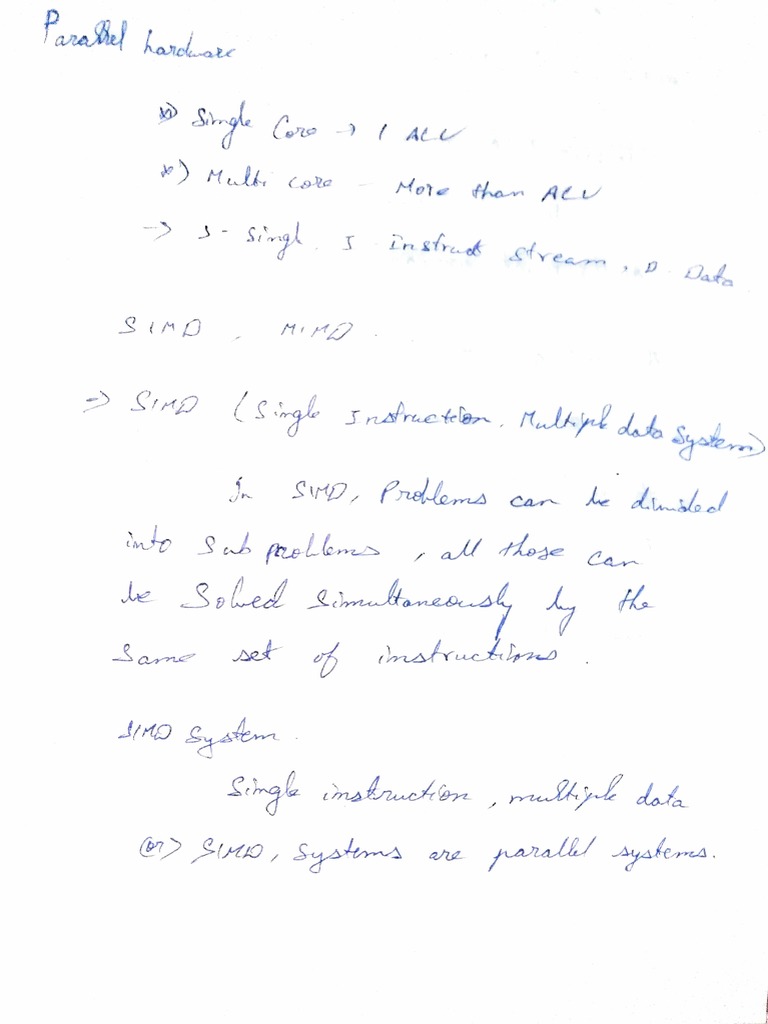 Parallel hardware
*) Single Core → 1 ALU
*) Multi core - More than ALU
→ S - Singl. I Instruct stream, D Data
SIMD, MIMD.
⇒ SIMD (Single Instruction, Multiple data System)
In SIMD, Problems can be divided
into Sub problems, all those can
be Solved Simultaneously by the
Same set of instructions.
SIMD System.
Single instruction, multiple data
(or) SIMD, Systems are parallel systems.